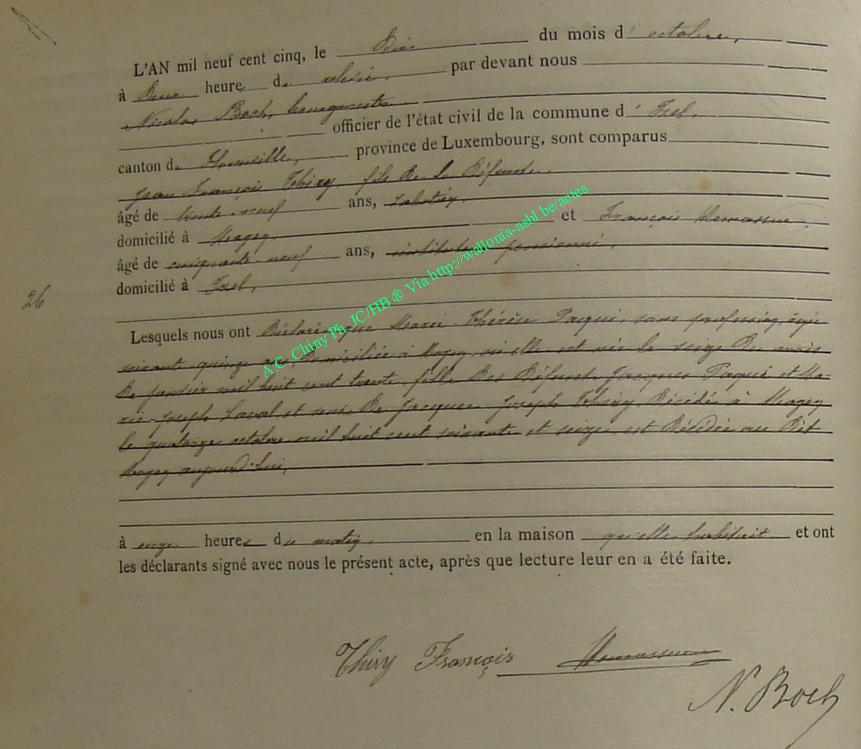 L'AN mil neuf cent cinq, le Dix du mois d'octobre,
à Deux heures de relevée, par devant nous
Nicolas Boch, bourgmestre
officier de l'état civil de la commune d'Izel,
canton de Florenville, province de Luxembourg, sont comparus
Jean François Thiry, fils de la Défunte,
âgé de trente-neuf ans, sabotier,
domicilié à Moyen et François
âgé de cinquante neuf ans, instituteur pensionné,
domicilié à Izel,
26
Lesquels nous ont Déclaré que Marie-Thérèse Paqui, sans profession, âgée
soixante quinze ans, domiciliée à Moyen, où elle est née le seize du mois
de janvier mil huit cent trente, fille des Défunts Jacques Paqui et Ma-
rie-Joseph Laval, et veuve de Jacques Joseph Thiry, Décédé à Moyen
le quatorze octobre mil huit cent soixante et seize, est Décédée au Dit
Moyen aujourd'hui,
à onze heures du matin, en la maison qu'elle habitait et ont
les déclarants signé avec nous le présent acte, après que lecture leur en a été faite.
Thiry François
N. Boch
A.C. Chiny Ph. JC/HB ® Via http://wallonia-asbl.be/actes